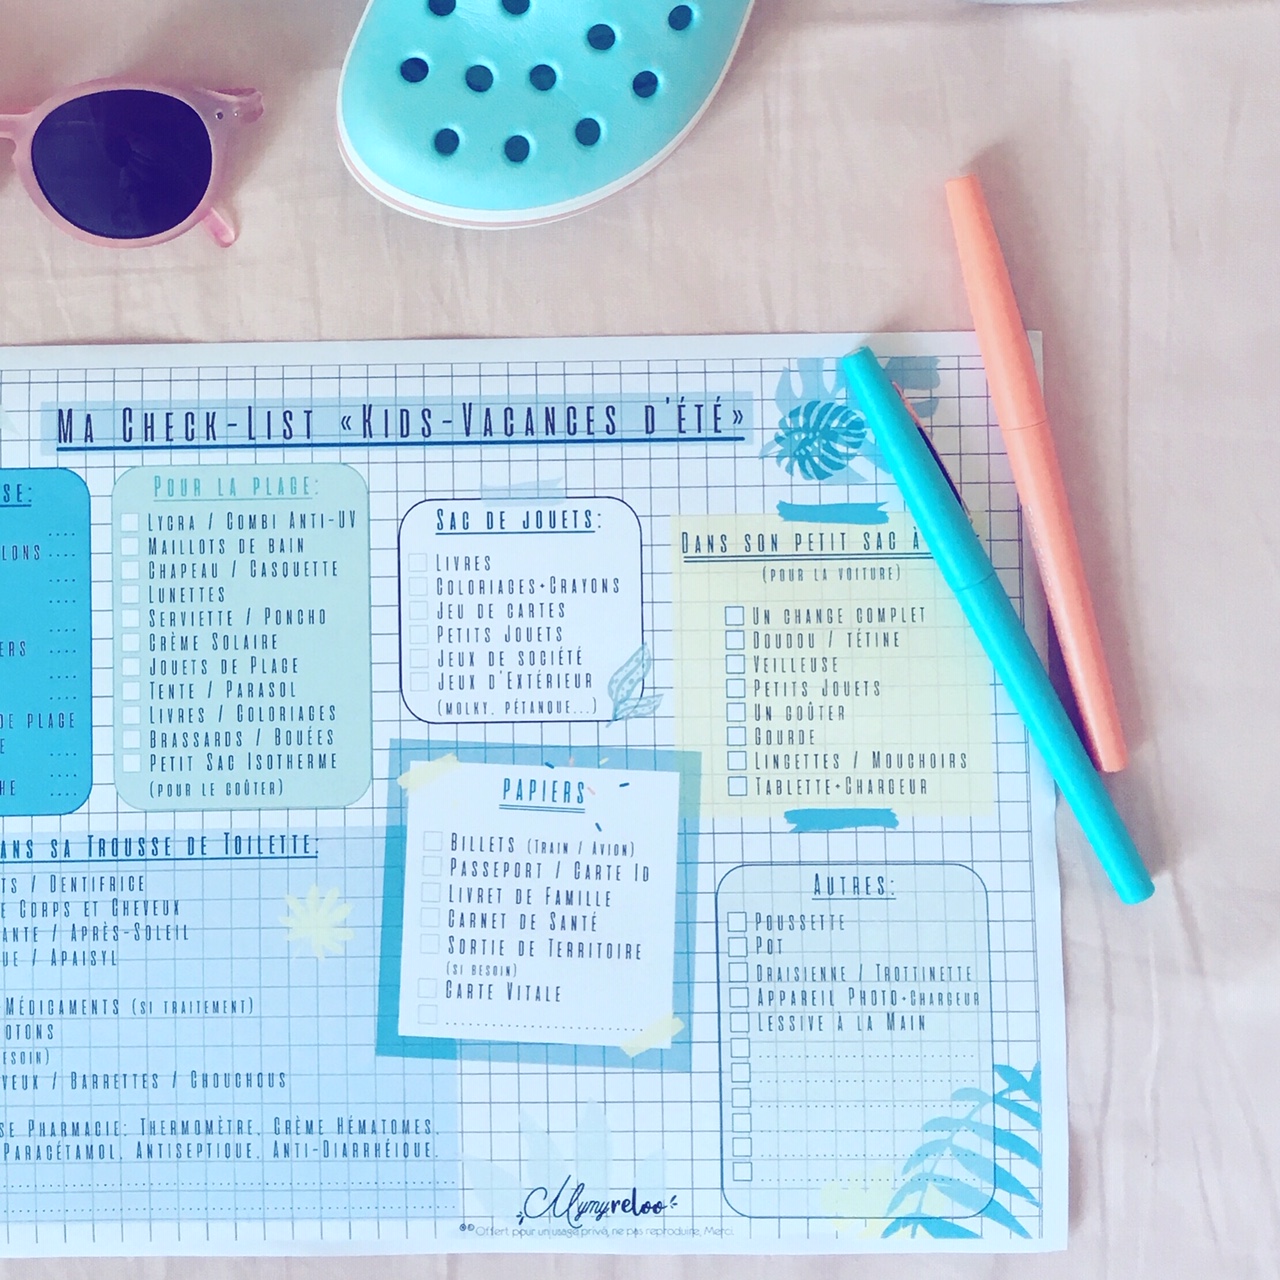 Ma Check-List «Kids-Vacances d'été»
SE:
....
LONS ....
....
....
ERS ....
....
....
DE PLAGE
E ....
....
HE ....
Pour la plage:
Lycra / Combi Anti-UV
Maillots de bain
Chapeau / Casquette
Lunettes
Serviette / Poncho
Crème Solaire
Jouets de Plage
Tente / Parasol
Livres / Coloriages
Brassards / Bouées
Petit Sac Isotherme
(pour le goûter)
Sac de jouets:
Livres
Coloriages+Crayons
Jeu de cartes
Petits Jouets
Jeux de société
Jeux d'Extérieur
(Molky, Pétanque...)
Dans son petit sac à
(pour la voiture)
Un change complet
Doudou / tétine
Veilleuse
Petits Jouets
Un goûter
Gourde
Lingettes / Mouchoirs
Tablette+Chargeur
Papiers
Billets (Train / Avion)
Passeport / Carte Id
Livret de Famille
Carnet de Santé
Sortie de Territoire
(si besoin)
Carte Vitale
ans sa Trousse de Toilette:
ts / Dentifrice
e Corps et Cheveux
ante / Après-Soleil
ue / Apaisyl
Médicaments (si traitement)
otons
esoin)
veux / Barrettes / Chouchous
se Pharmacie: Thermomètre, Crème Hématomes,
Paracétamol, Antiseptique, Anti-Diarrhéique.
Autres:
Poussette
Pot
Draisienne / Trottinette
Appareil Photo+Chargeur
Lessive à la Main
Mymyreloo
Offert pour un usage privé, ne pas reproduire. Merci.